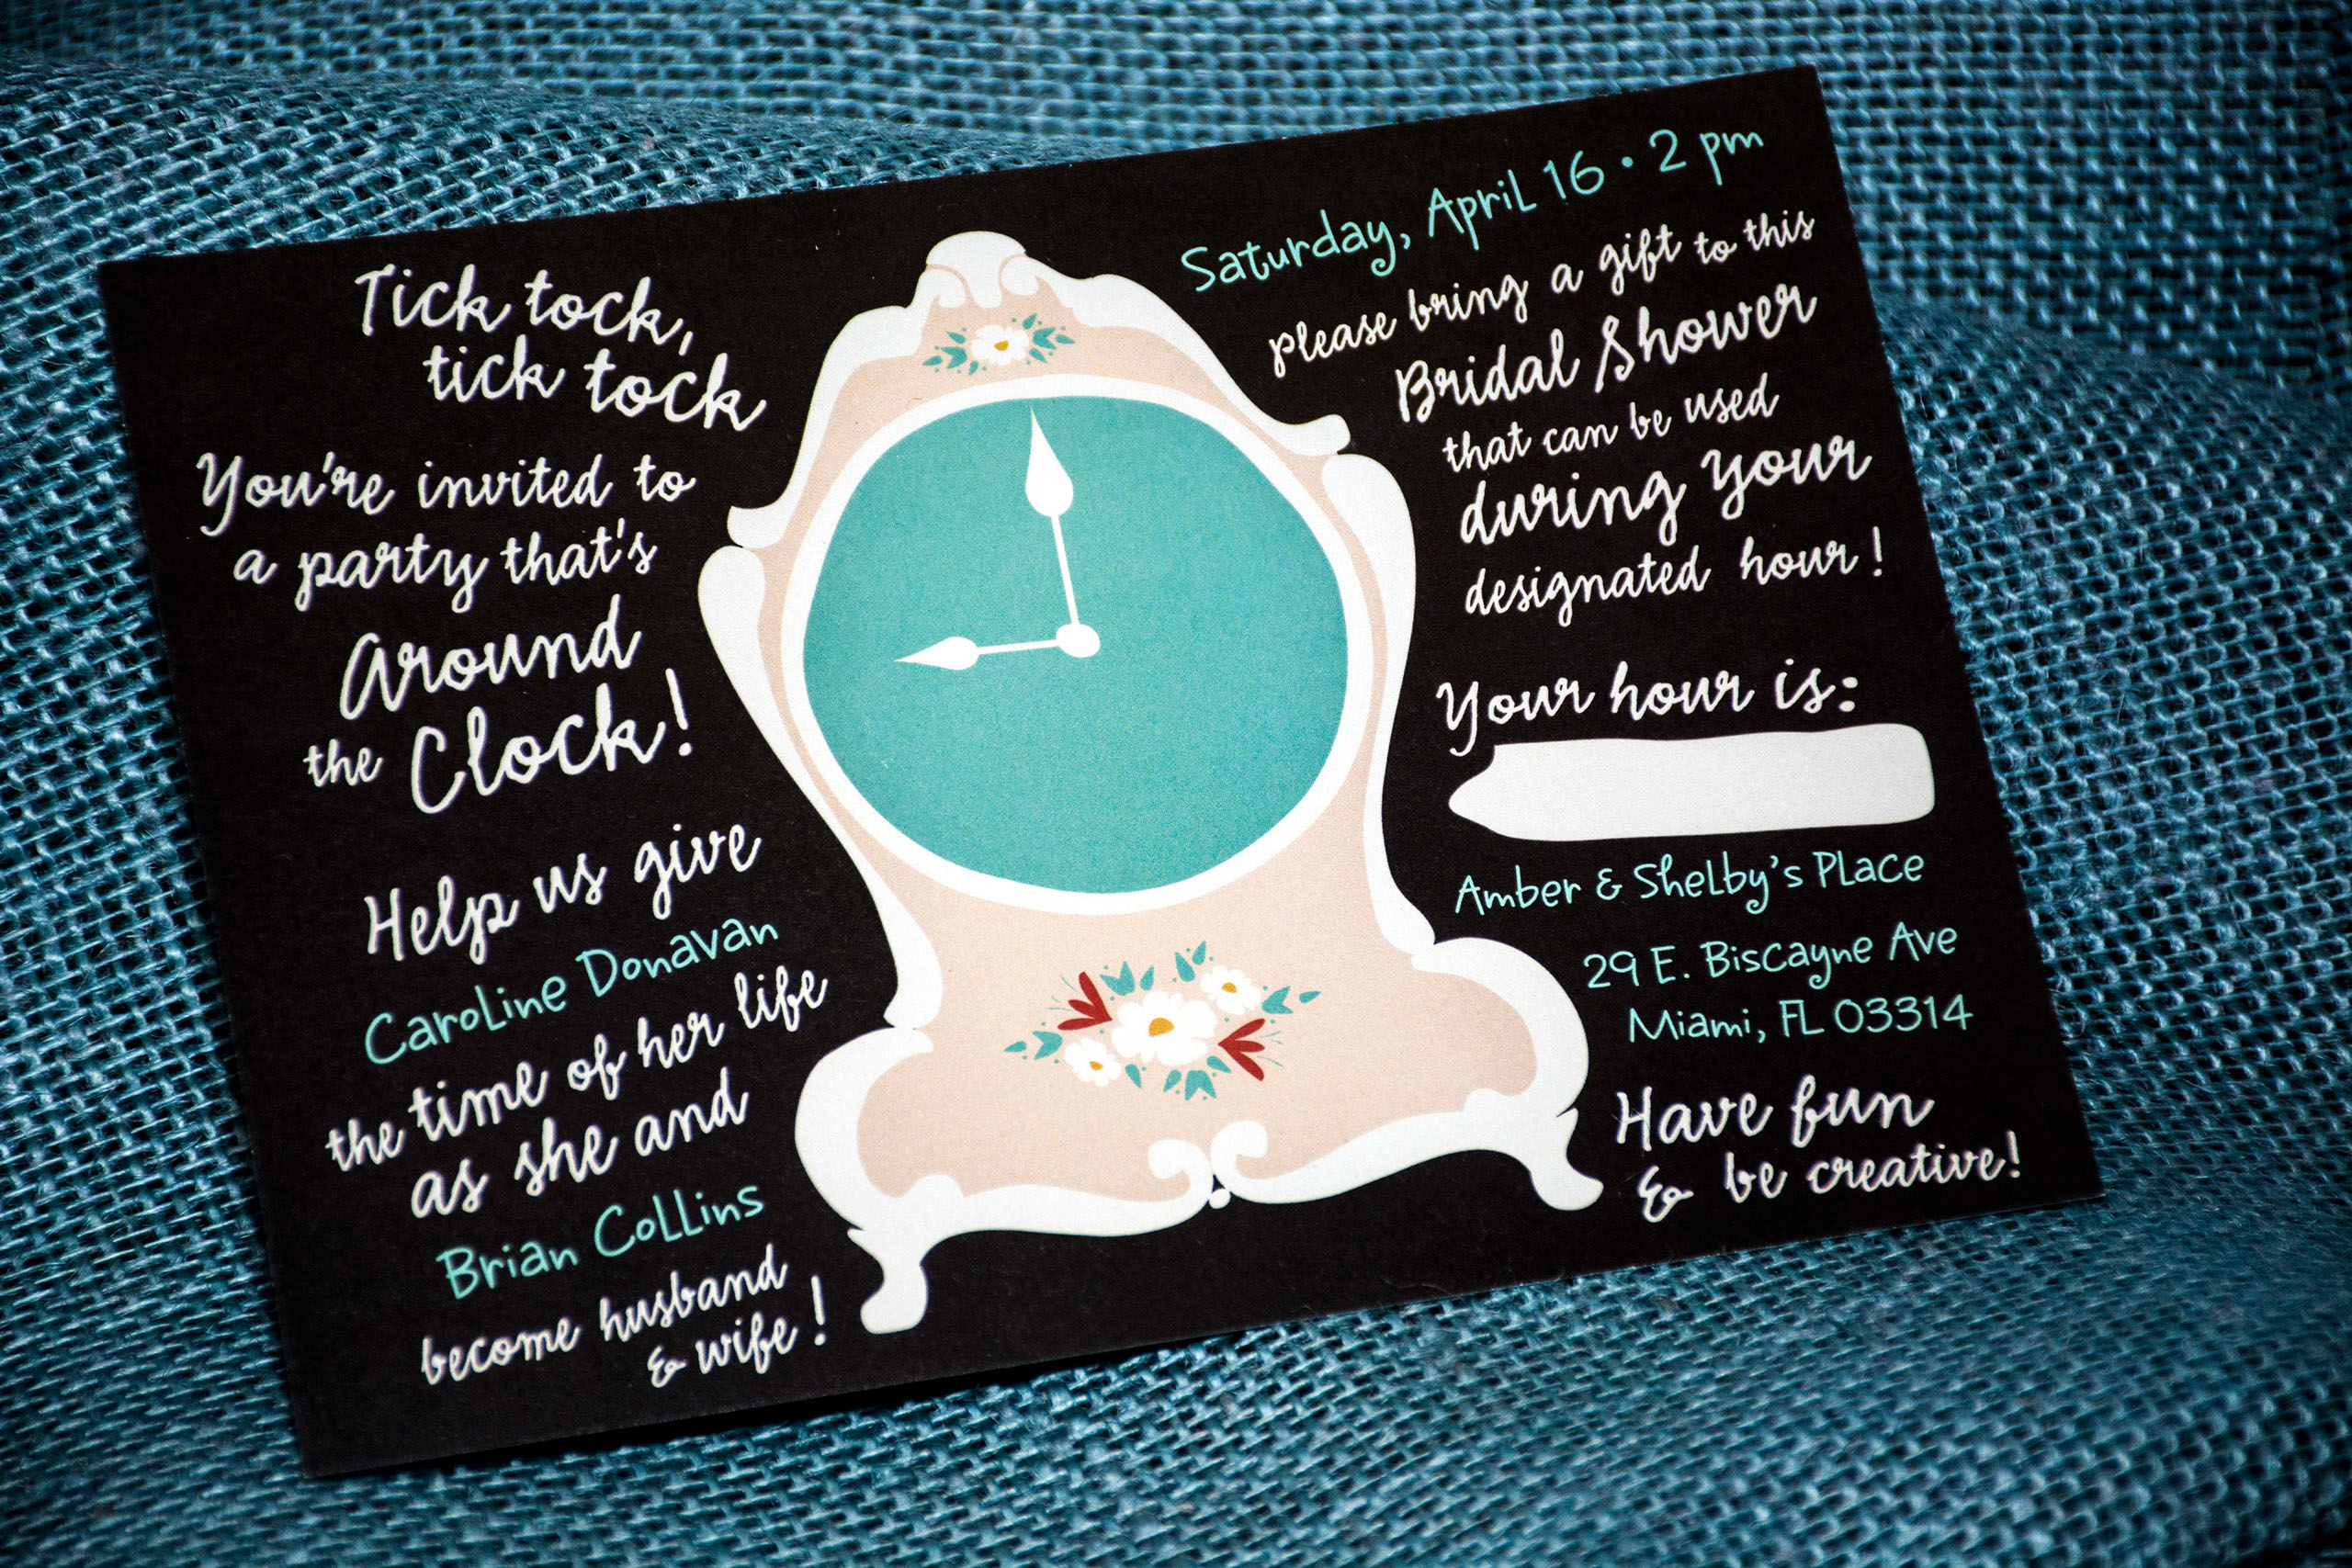 Tick tock,
tick tock
You're invited to
a party that's
Around
the Clock!
Help us give
Caroline Donavan
the time of her life
as she and
Brian Collins
become husband
& wife!
Saturday, April 16 • 2 pm
please bring a gift to this
Bridal Shower
that can be used
during your
designated hour!
Your hour is:
Amber & Shelby's Place
29 E. Biscayne Ave
Miami, FL 03314
Have fun
& be creative!